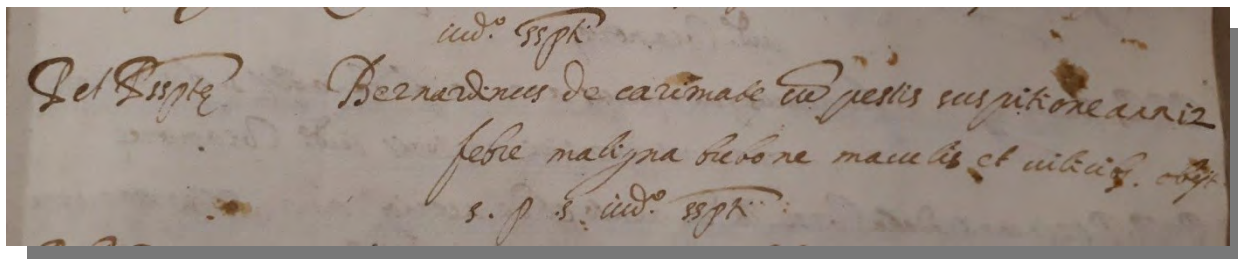 iud.º sspti
P. et P. ssptę Bernardinus de carimate cũ pestis suspitione ann 12
febre maligna bubone maculis et vilicib. obijt
s. p. s. iud.º sspti